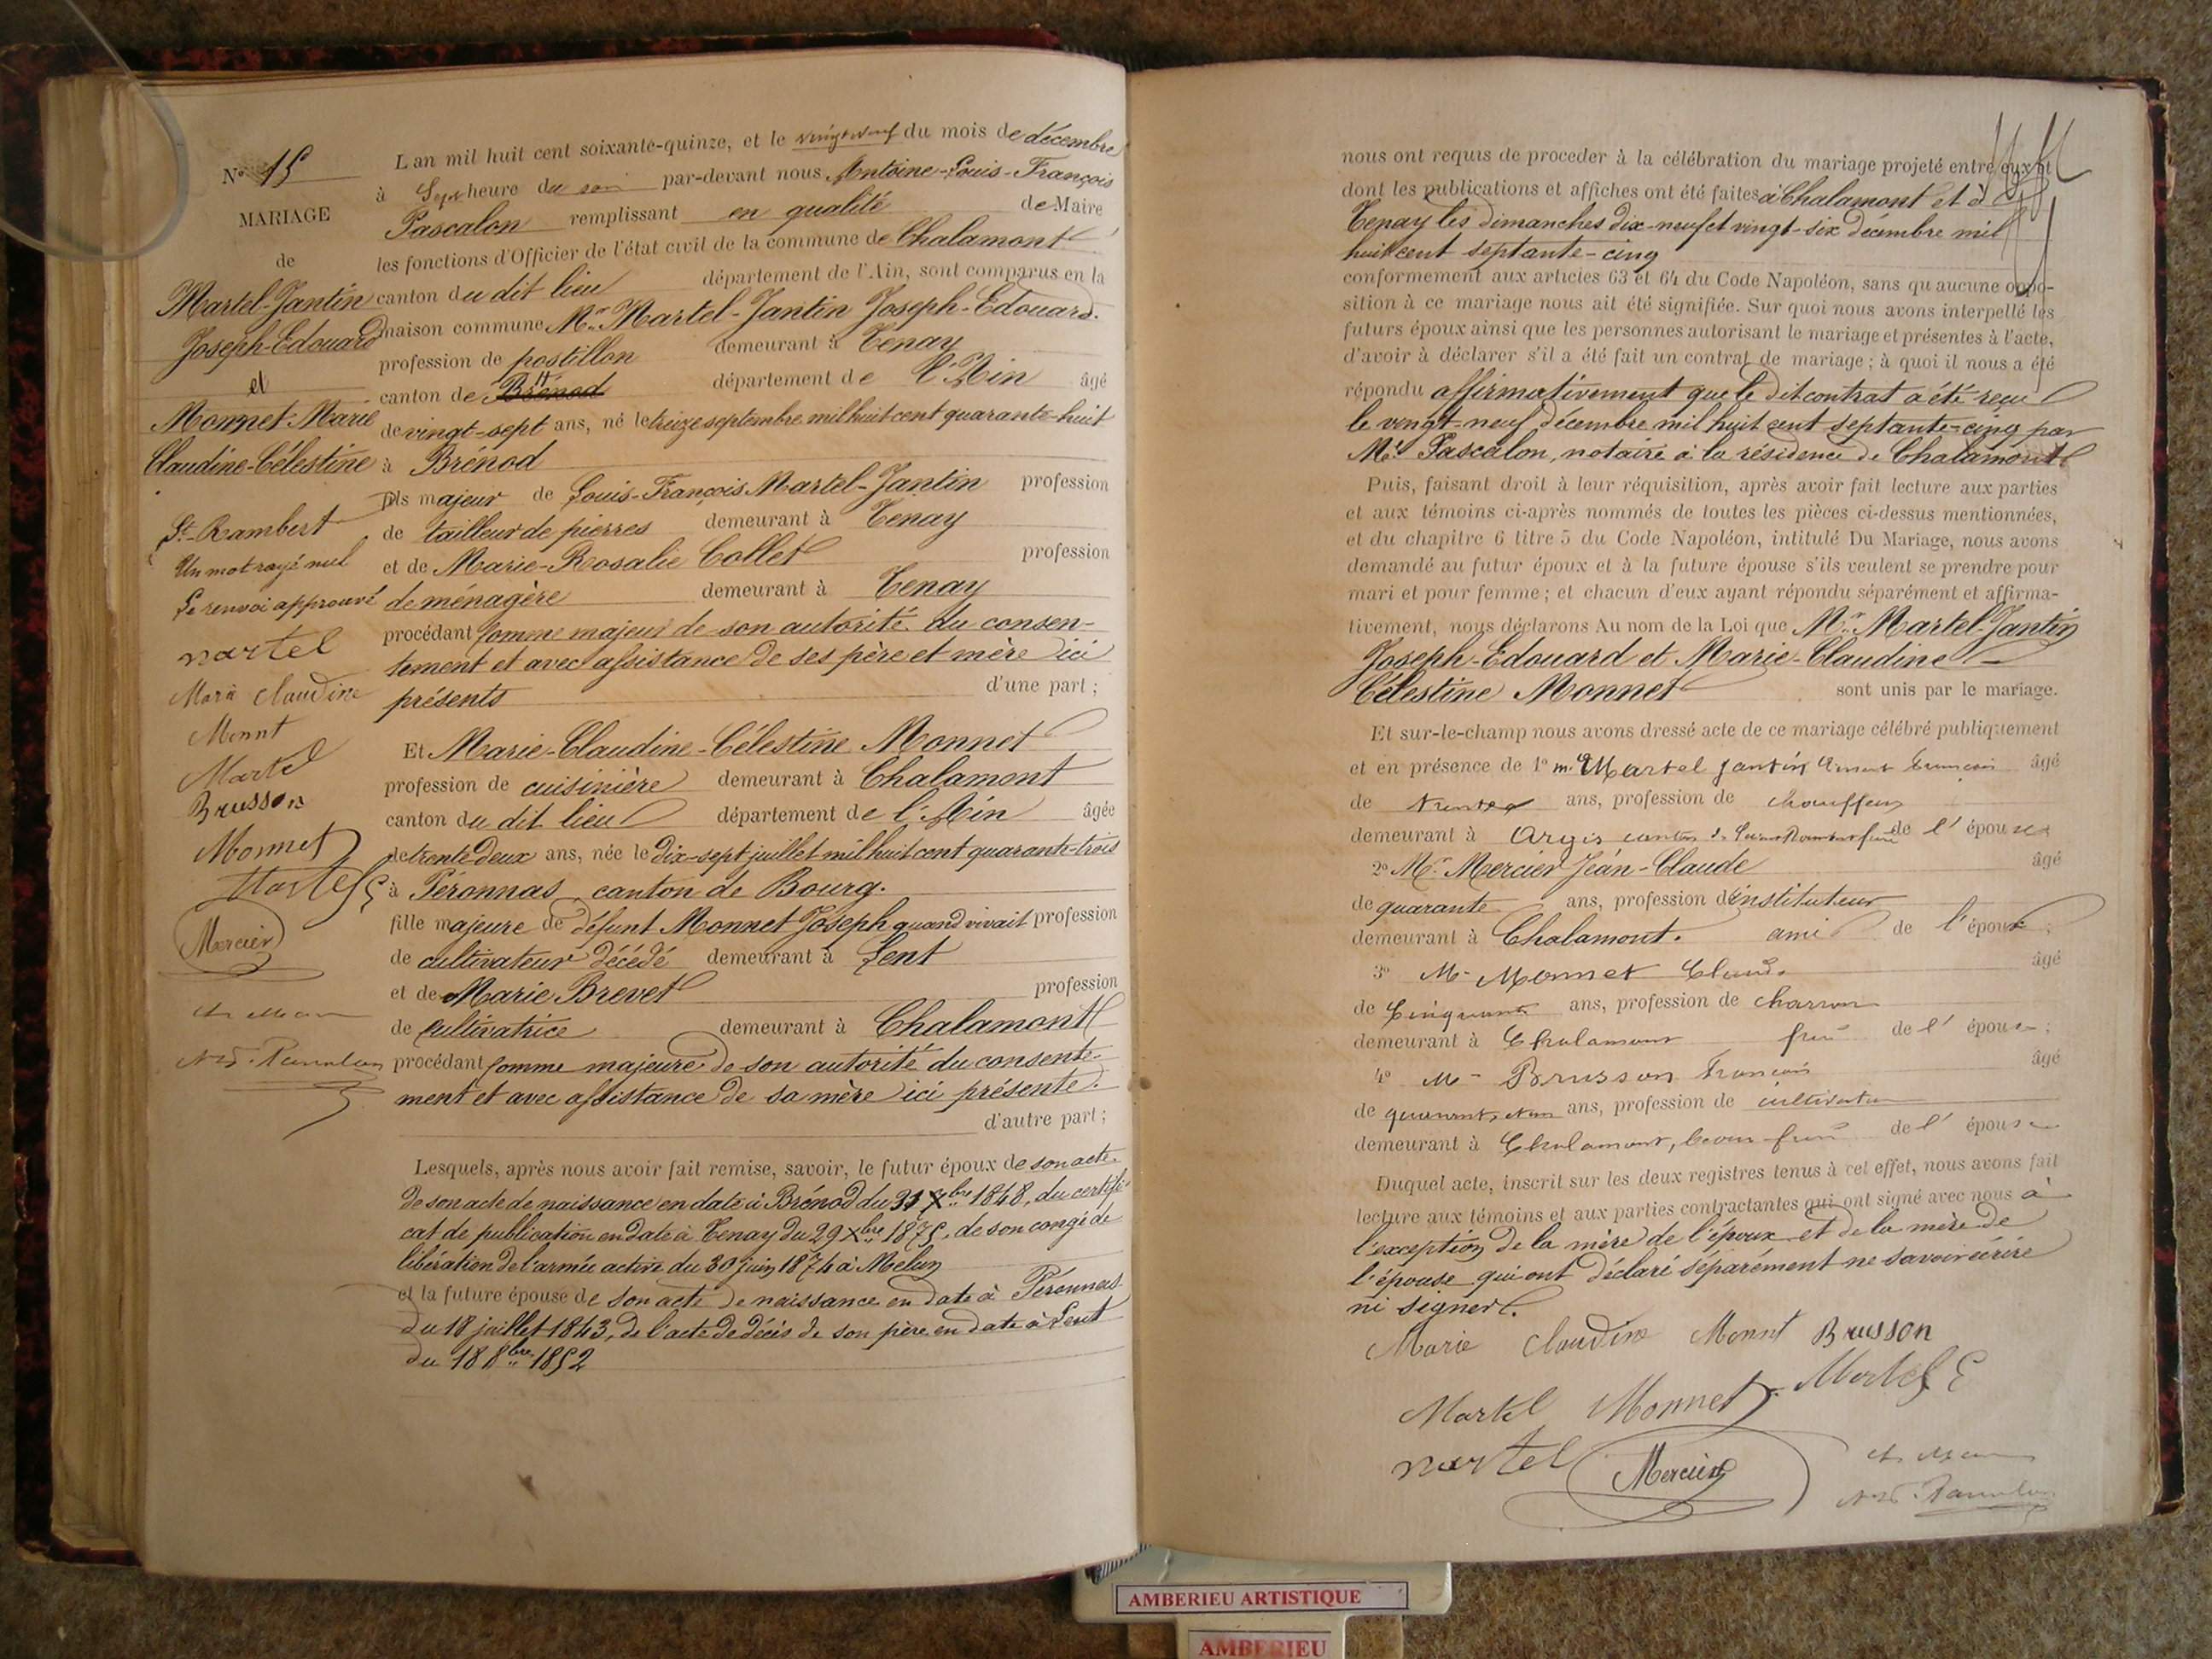 N° 15
MARIAGE
de
Martel-Jantin
Joseph-Edouard
et
Monnet Marie
Claudine-Célestine
St-Rambert
Un mot rayé nul
Le renvoi approuvé
martel
Marie Claudine
Monnt
Martel
Brusson
Monnet
Martel E
Mercier
L'an mil huit cent soixante-quinze, et le vingt neuf du mois de décembre
à Sept heure du soir par-devant nous Antoine-Louis-François
Pascalon remplissant en qualité de Maire
les fonctions d'Officier de l'état civil de la commune de Chalamont
canton du dit lieu département de l'Ain, sont comparus en la
maison commune Mr Martel-Jantin Joseph-Edouard.
profession de postillon demeurant à Tenay
canton de Brénod département de l'Ain âgé
de vingt-sept ans, né le treize septembre mil huit cent quarante-huit
à Brénod
fils majeur de Louis-François Martel-Jantin profession
de tailleur de pierres demeurant à Tenay
et de Marie-Rosalie Collet profession
de ménagère demeurant à Tenay
procédant comme majeur de son autorité du consen-
tement et avec assistance de ses père et mère ici
présents d'une part ;
Et Marie-Claudine-Célestine Monnet
profession de cuisinière demeurant à Chalamont
canton du dit lieu département de l'Ain âgée
de trente deux ans, née le dix-sept juillet mil huit cent quarante-trois
à Péronnas canton de Bourg.
fille majeure de défunt Monnet Joseph quand vivait profession
de cultivateur décédé demeurant à Lent
et de Marie Brevet profession
de cultivatrice demeurant à Chalamont
procédant comme majeure de son autorité du consente-
ment et avec assistance de sa mère ici présente.
d'autre part ;
Lesquels, après nous avoir fait remise, savoir, le futur époux de son acte
de son acte de naissance en date à Brénod du 31 Xbre 1848, du certifi-
cat de publication en date à Tenay du 29 Xbre 1875, de son congé de
libération de l'armée active du 30 juin 1874 à Melun
et la future épouse de son acte de naissance en date à Péronnas
du 18 juillet 1843, de l'acte de décès de son père en date à Lent
du 18 8bre 1852
nous ont requis de proceder à la célébration du mariage projeté entre eux et
dont les publications et affiches ont été faites à Chalamont et à
Tenay les dimanches dix-neuf et vingt-six décembre mil
huit cent septante-cinq
conformement aux articles 63 et 64 du Code Napoléon, sans qu'aucune oppo-
sition à ce mariage nous ait été signifiée. Sur quoi nous avons interpellé les
futurs époux ainsi que les personnes autorisant le mariage et présentes à l'acte,
d'avoir à déclarer s'il a été fait un contrat de mariage ; à quoi il nous a été
répondu affirmativement que le dit contrat a été reçu
le vingt-neuf décembre mil huit cent septante-cinq par
Me Pascalon, notaire à la résidence de Chalamont
Puis, faisant droit à leur réquisition, après avoir fait lecture aux parties
et aux témoins ci-après nommés de toutes les pièces ci-dessus mentionnées,
et du chapitre 6 titre 5 du Code Napoléon, intitulé Du Mariage, nous avons
demandé au futur époux et à la future épouse s'ils veulent se prendre pour
mari et pour femme ; et chacun d'eux ayant répondu séparément et affirma-
tivement, nous déclarons Au nom de la Loi que Mr Martel-Jantin
Joseph-Edouard et Marie-Claudine
Célestine Monnet sont unis par le mariage.
Et sur-le-champ nous avons dressé acte de ce mariage célébré publiquement
et en présence de 1° Mr Martel Jantin François âgé
de trente ans, profession de chauffeur
demeurant à Argis canton de Saint Rambert frère de l'époux
2° Mr Mercier Jean-Claude âgé
de quarante ans, profession d'instituteur
demeurant à Chalamont. ami de l'époux ;
3° Mr Monnet Claude âgé
de Cinquante ans, profession de charron
demeurant à Chalamont frère de l'épouse ;
4° Mr Brusson François âgé
de ans, profession de cultivateur
demeurant à Chalamont, beau-frère de l'épouse
Duquel acte, inscrit sur les deux registres tenus à cet effet, nous avons fait
lecture aux témoins et aux parties contractantes qui ont signé avec nous à
l'exception de la mère de l'époux et de la mère de
l'épouse qui ont déclaré séparément ne savoir écrire
ni signer.
Marie Claudine Monnt Brusson
Martel Monnet Martel E
martel Mercier
AMBERIEU ARTISTIQUE
AMBERIEU